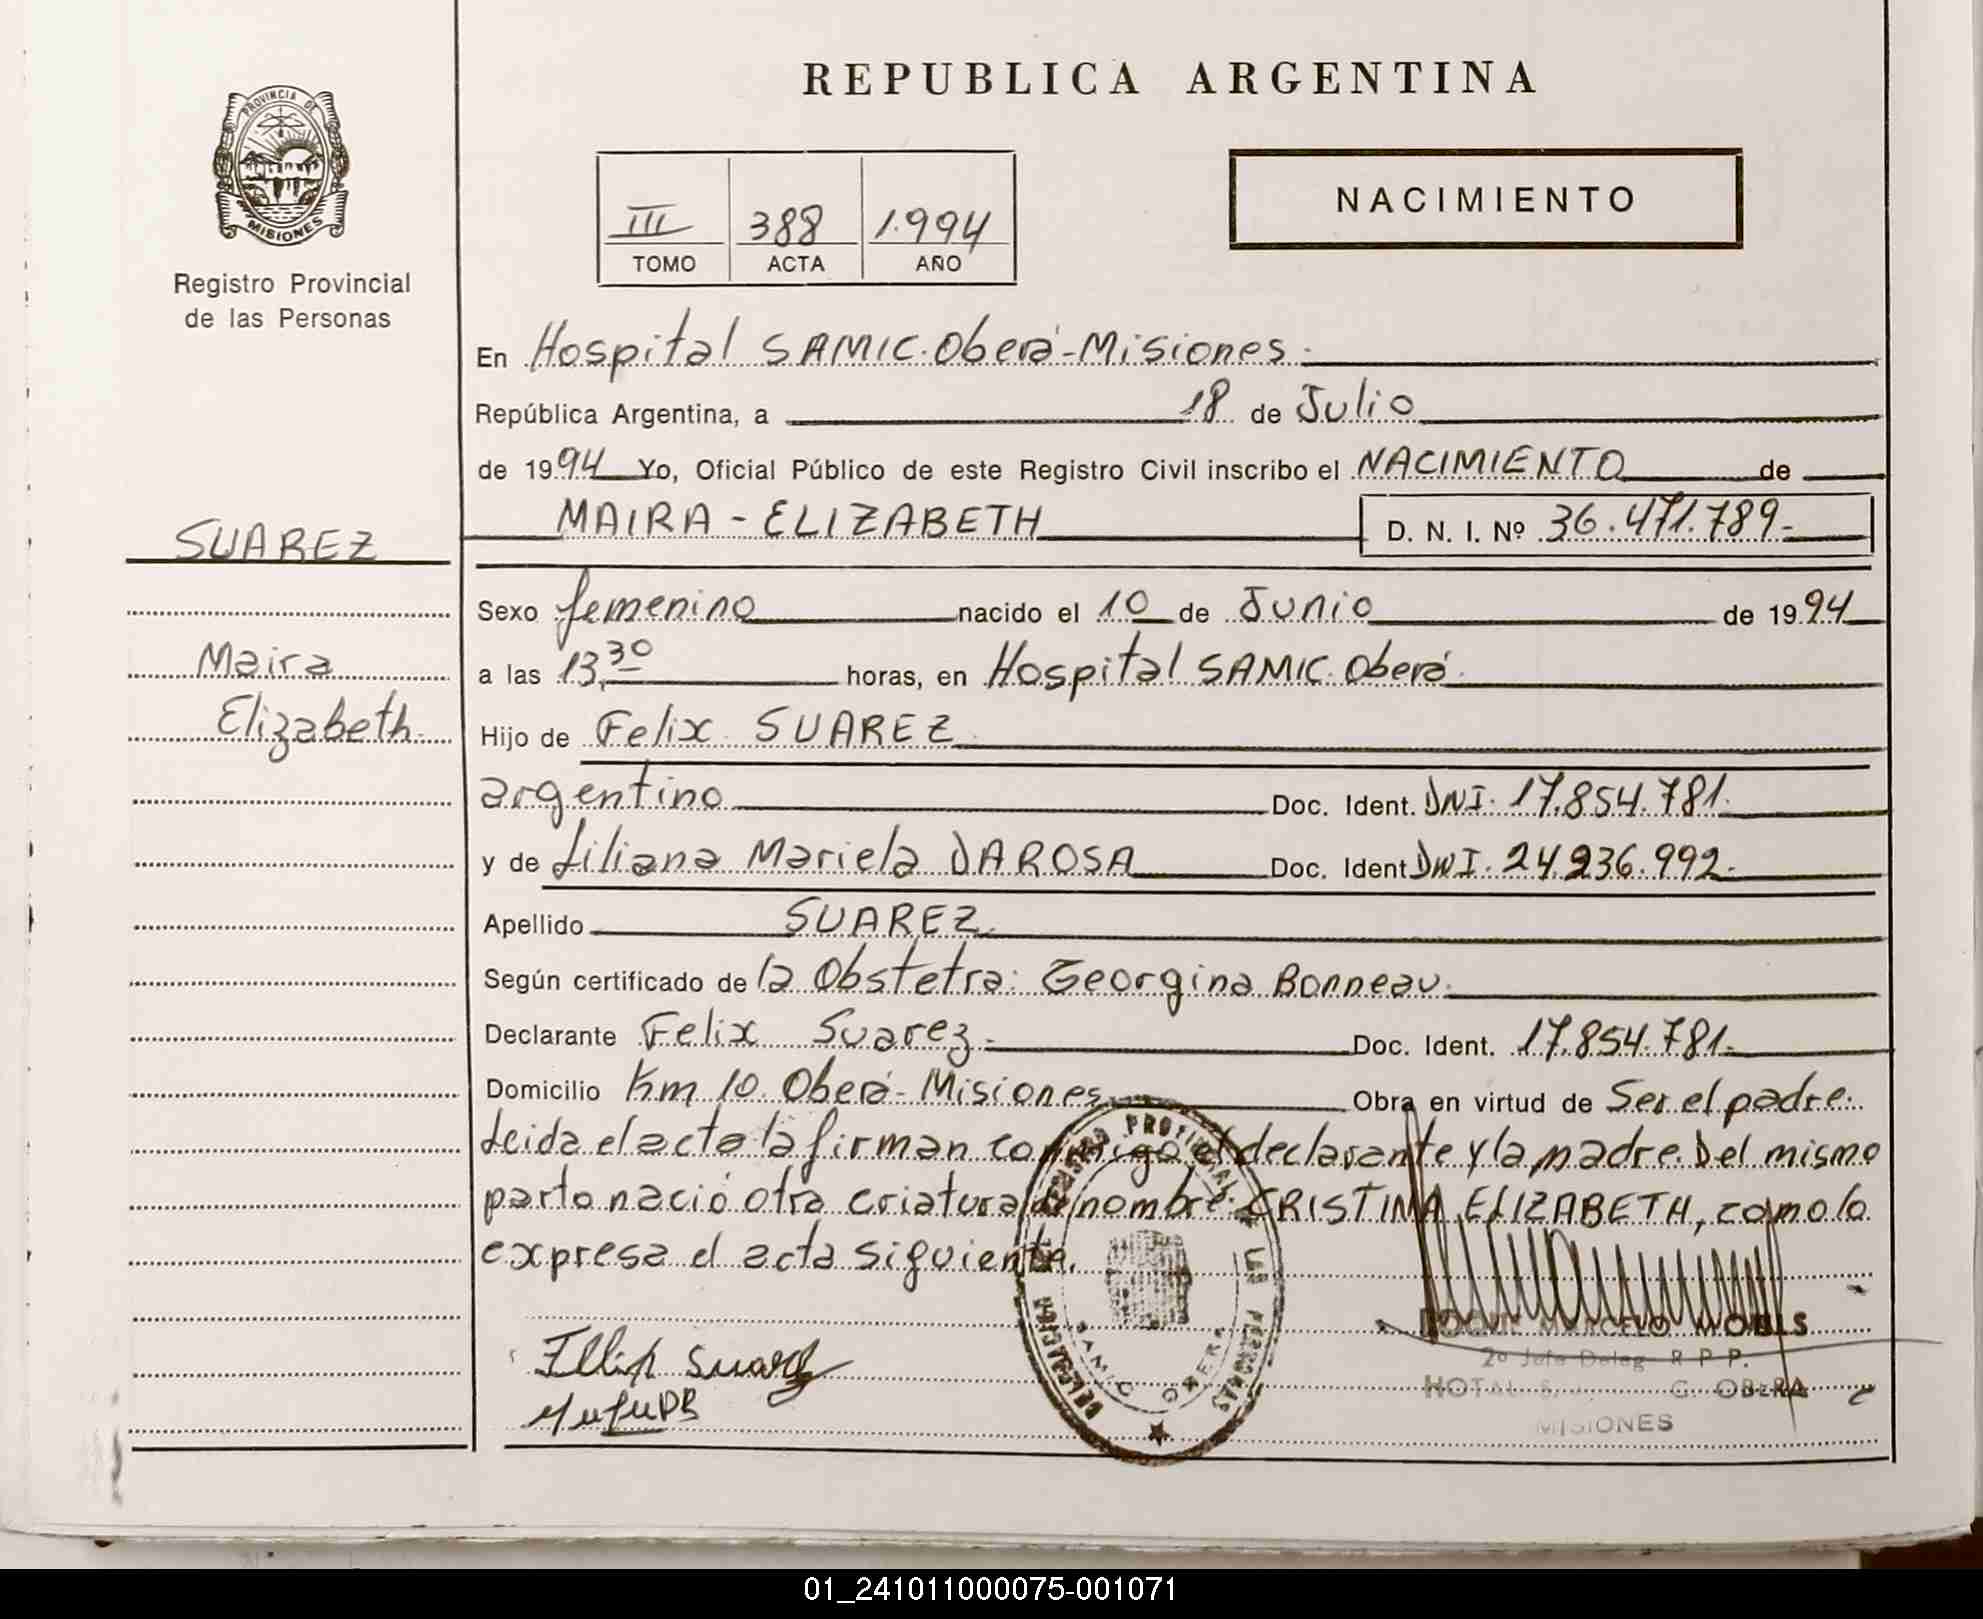 REPUBLICA ARGENTINA
PROVINCIA DE
MISIONES
Registro Provincial
de las Personas
III 388 1.994
TOMO ACTA AÑO
NACIMIENTO
En Hospital SAMIC. Oberá-Misiones.
República Argentina, a 18 de Julio
de 1994 Yo, Oficial Público de este Registro Civil inscribo el NACIMIENTO de
MAIRA - ELIZABETH D. N. I. Nº 36.471.789-
SUAREZ
Maira
Elizabeth.
Sexo femenino nacido el 10 de Junio de 1994
a las 13,30 horas, en Hospital SAMIC. Oberá.
Hijo de Felix SUAREZ
argentino Doc. Ident. DNI. 17.854.781.
y de Liliana Mariela DAROSA Doc. Ident DNI. 24.236.992-
Apellido SUAREZ.
Según certificado de la Obstetra: Georgina Bonneau.
Declarante Felix Suarez- Doc. Ident. 17.854.781.
Domicilio Km 10. Oberá-Misiones Obra en virtud de Ser el padre.
Leida el acta la firman conmigo el declarante y la madre. Del mismo
parto nació otra criatura de nombre: CRISTINA ELIZABETH, como lo
expresa el acta siguiente.
REGISTRO PROVINCIAL DE LAS PERSONAS
DELEGACION
SAMIC OBERA
Suarez
MARCELO
2º Jefe Deleg. R. P. P.
OBERA
MISIONES
01_241011000075-001071